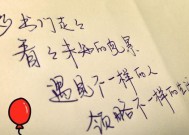 出门走走
看看未知的风景
遇见不一样的人
领略不一样的